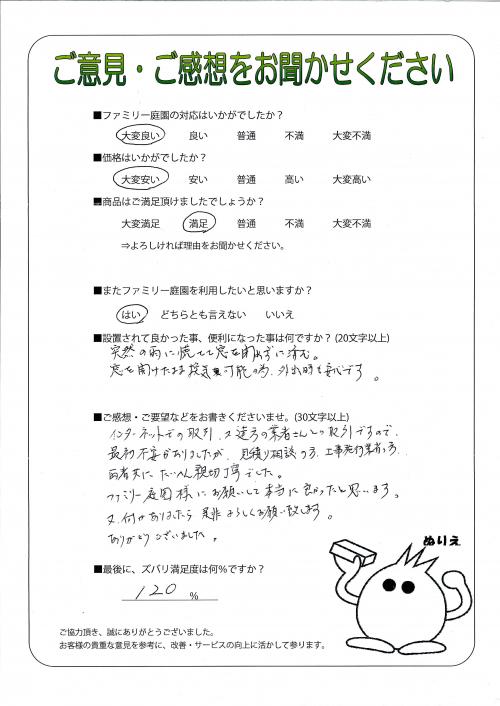 ご意見・ご感想をお聞かせください
■ファミリー庭園の対応はいかがでしたか？
大変良い 良い 普通 不満 大変不満
■価格はいかがでしたか？
大変安い 安い 普通 高い 大変高い
■商品はご満足頂けましたでしょうか？
大変満足 満足 普通 不満 大変不満
⇒よろしければ理由をお聞かせください。
■またファミリー庭園を利用したいと思いますか？
はい どちらとも言えない いいえ
■設置されて良かった事、便利になった事は何ですか？(20文字以上)
突然の雨に慌てて窓を閉めずに済む。
窓を開けたまま換気可能の為、外出時も安心です。
■ご感想・ご要望などをお書きくださいませ。(30文字以上)
インターネットでの取引、又遠方の業者さんとの取引ですので、
最初不安がありましたが、見積り相談の方、工事施行業者の方、
両者共にたいへん親切丁寧でした。
ファミリー庭園様にお願いして本当に良かったと思います。
又、何かありましたら是非よろしくお願い致します。
ありがとうございました。
ぬりえ
■最後に、ズバリ満足度は何％ですか？
120 ％
ご協力頂き、誠にありがとうございました。
お客様の貴重な意見を参考に、改善・サービスの向上に活かして参ります。